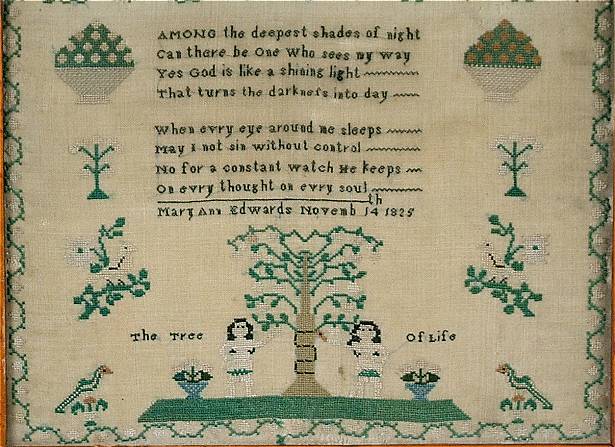 AMONG the deepest shades of night
Can there be One Who sees my way
Yes God is like a shining light
That turns the darkneſs into day
When evry eye around me sleeps
May I not sin without control
No for a constant watch He keeps
On evry thought on evry soul
Mary Ann Edwards Novemb 14th 1825
The Tree Of Life